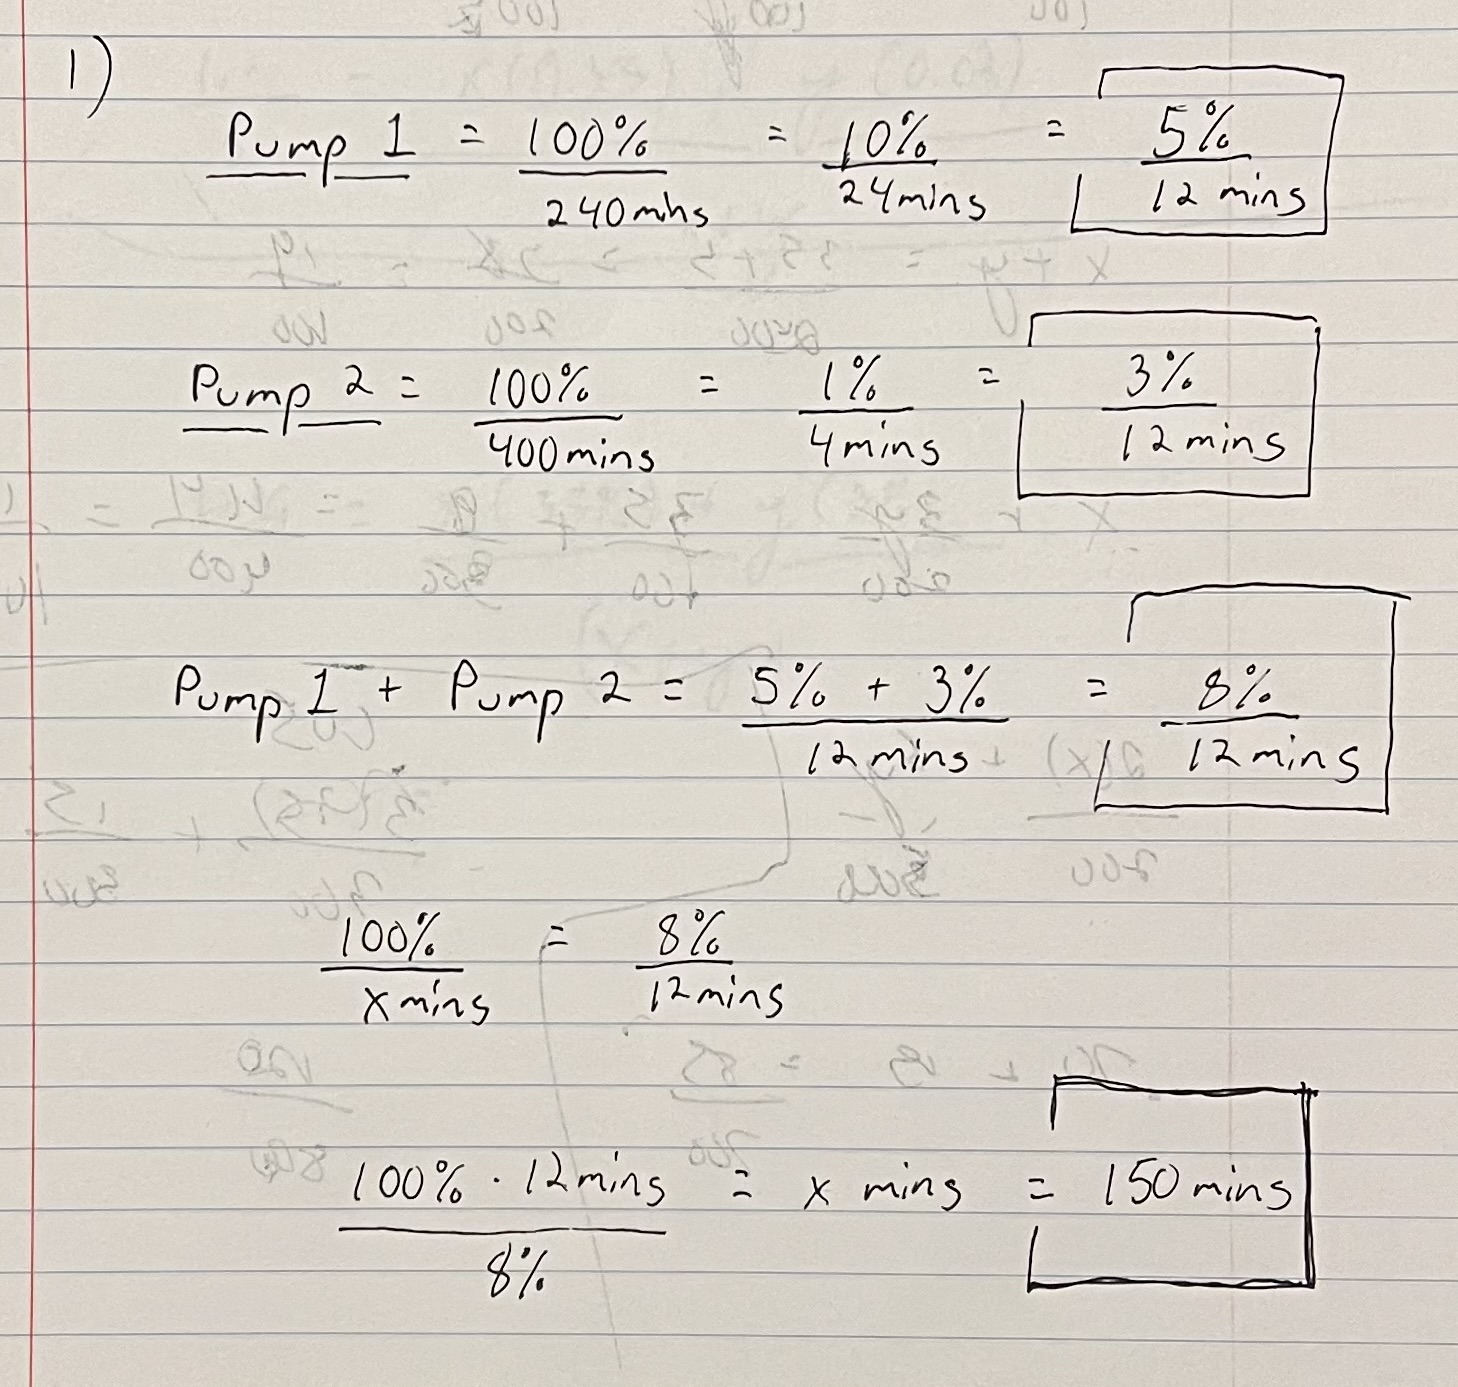 1)
Pump 1 = 100% / 240 mins = 10% / 24 mins = 5% / 12 mins
Pump 2 = 100% / 400 mins = 1% / 4 mins = 3% / 12 mins
Pump 1 + Pump 2 = 5% + 3% / 12 mins = 8% / 12 mins
100% / x mins = 8% / 12 mins
100% · 12 mins / 8% = x mins = 150 mins